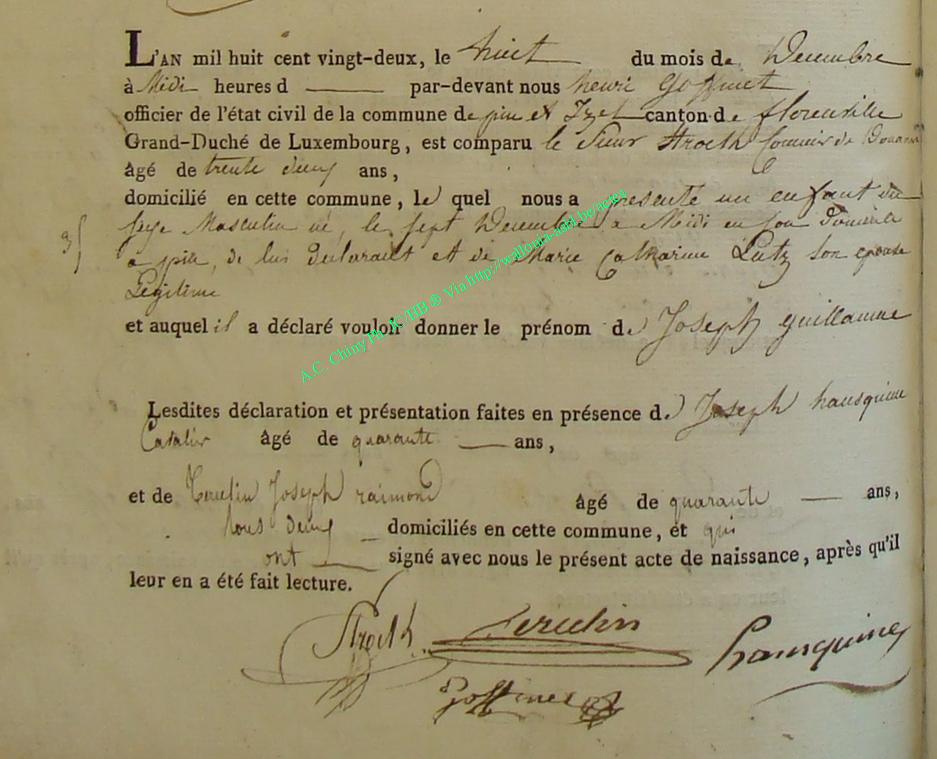 L'AN mil huit cent vingt-deux, le huit du mois de Decembre
à Midi heures d par-devant nous henri Goffinet
officier de l'état civil de la commune de pin et Izel canton de florenville
Grand-Duché de Luxembourg, est comparu le Sieur Stroeth Commis de Douanes
âgé de trente deux ans,
domicilié en cette commune, le quel nous a presenté un enfant du
sexe Masculin né, le sept Decembre a Midi en son domicile
à pin, de lui declarant et de Marie Catharine Lutz son epouse
Legitime
et auquel il a déclaré vouloir donner le prénom de Joseph guillaume
Lesdites déclaration et présentation faites en présence de Joseph hansquine
âgé de quarante ans,
et de Joseph raimond âgé de quarante ans,
tous deux domiciliés en cette commune, et qui
ont signé avec nous le présent acte de naissance, après qu'il
leur en a été fait lecture.
Stroeth
hansquine
Goffinet
A.C. Chiny Ph. JC HB ® Via http://wallonia-asbl.be/actes